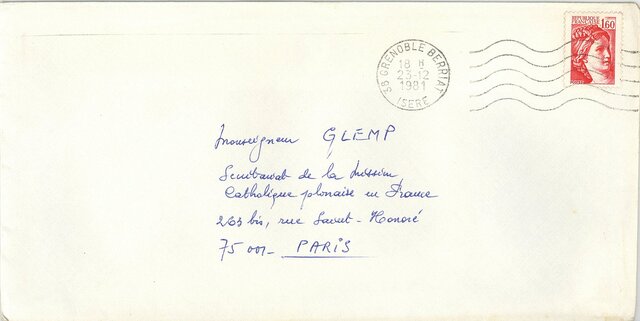 38 GRENOBLE BERRIAT
18 H
23-12
1981
ISERE
REPUBLIQUE FRANCAISE
1,60
Monseigneur GLEMP
Secrétariat de la Mission
Catholique polonaise en France
263 bis, rue Saint-Honoré
75001 - PARIS